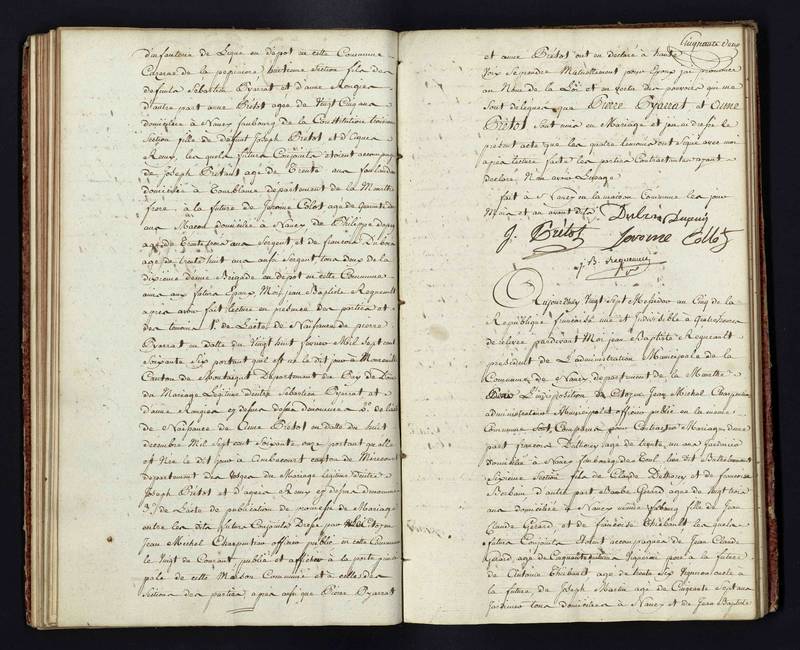 d'infanterie de Ligne en depot en cette Commune
de la pepiniere huitieme Section fils des
defunts Sébastien Pyarrat et d'anne Rongier
d'autre part anne Brétot agée de Vingt Cinq ans
domiciliée à Nancy faubourg de la Constitution troisieme
Section fille de défunt Joseph Brétot et d'
Remy, les quels futurs Conjoints étoient accompagnés
de Joseph Brétot agé de Trente ans
domicilié à département de la Meurthe
frere à la future de Jerome Colot agé de quarante
ans Macon domicilié à Nancy de Philippe
agé de trente trois ans Sergent et de francois Dubois
agé de trente huit ans aussi Sergent tous deux de la
dixieme demie Brigade en depot en cette Commune
amis aux futurs Epoux, Moi jean Baptiste Regneault
apres avoir fait lecture en presence des parties et
des temoins 1° de L'acte de Naissance de pierre
Pyarrat en datte du Vingt huit fevrier Mil Sept cent
Soixante Six portant qu'il est né le dit jour à
Canton de Montaigut Département du Puy de Dôme
du Mariage Légitime d'entre Sébastien Pyarrat et
d'anne Rongier 2° de l'acte
de Naissance de Anne Brétot en datte du huit
decembre Mil Sept cent Soixante onze portant qu'elle
est Née le dit jour à Ambacourt canton de Mirecourt
département des Vosges du Mariage légitime d'entre
Joseph Brétot et d' Remy
3° de L'acte de publication de promesse de Mariage
entre les dits futurs Conjoints Dressé par le Citoyen
Jean Michel Charpentier officier public en cette Commune
le Vingt du Courant publié et affiché à la porte princi
pale de cette Maison Commune et à celles des
Sections des parties, apres aussi que Pierre Pyarrat
Cinquante deux
et anne Brétot ont eu declaré à haute
Voix se prendre Mutuellement pour Epoux j'ai prononcé
au Nom de La Loi et en vertu des pouvoirs qui me
Sont délégués que Pierre Pyarrat et Anne
Brétot Sont unis en Mariage et j'en ai dressé le
présent acte que les quatre temoins ont signé avec moi
apres lecture faite les parties Contractantes ayant
declaré N'en avoir L'usage
fait à Nancy en la maison Commune les jour
Mois et an avant dits
J. Brétot Jerome Collot
J. B. Regneault
Aujourd'huy Vingt Sept Messidor an Cinq de la
République francaise une et Indivisible à quatre heures
de relevée pardevant Moi jean Baptiste Regneault
président de L'administration Municipale de la
Commune de Nancy département de la Meurthe
L'indisposition du Citoyen Jean Michel Charpentier
administrateur Municipal et officier public en la même
Commune Sont Comparus pour Contracter Mariage d'une
part francois Delhorey agé de trente un ans Jardinier
domicilié à Nancy faubourg de Toul
Sixieme Section fils de Claude Delhorey et de francoise
d'autre part Barbe Gérard agée de Vingt trois
ans domiciliée à Nancy même faubourg fille de Jean
Claude Gérard et de francoise Thiébault les quels
futurs Conjoints etoient accompagnés de Jean Claude
Gérard agé de Cinquante ans Vigneron pere à la future
de Antoine Thiébaut agé de trente Six Vigneron oncle à
la future, de Joseph Martin agé de Cinquante Sept ans
Jardinier tous domiciliés à Nancy et de Jean Baptiste